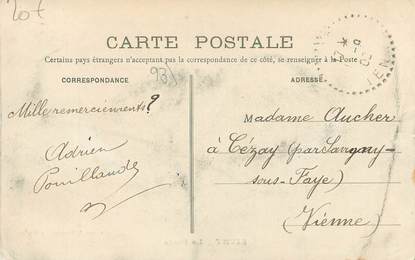 20f
CARTE POSTALE
Certains pays étrangers n'acceptant pas la correspondance de ce côté, se renseigner à la Poste
93)
CORRESPONDANCE
ADRESSE
Mille remerciements?
Adrien
Pouillaude
Madame Aucher
à Cézay (par Savigny-
sous-Faye)
(Vienne)